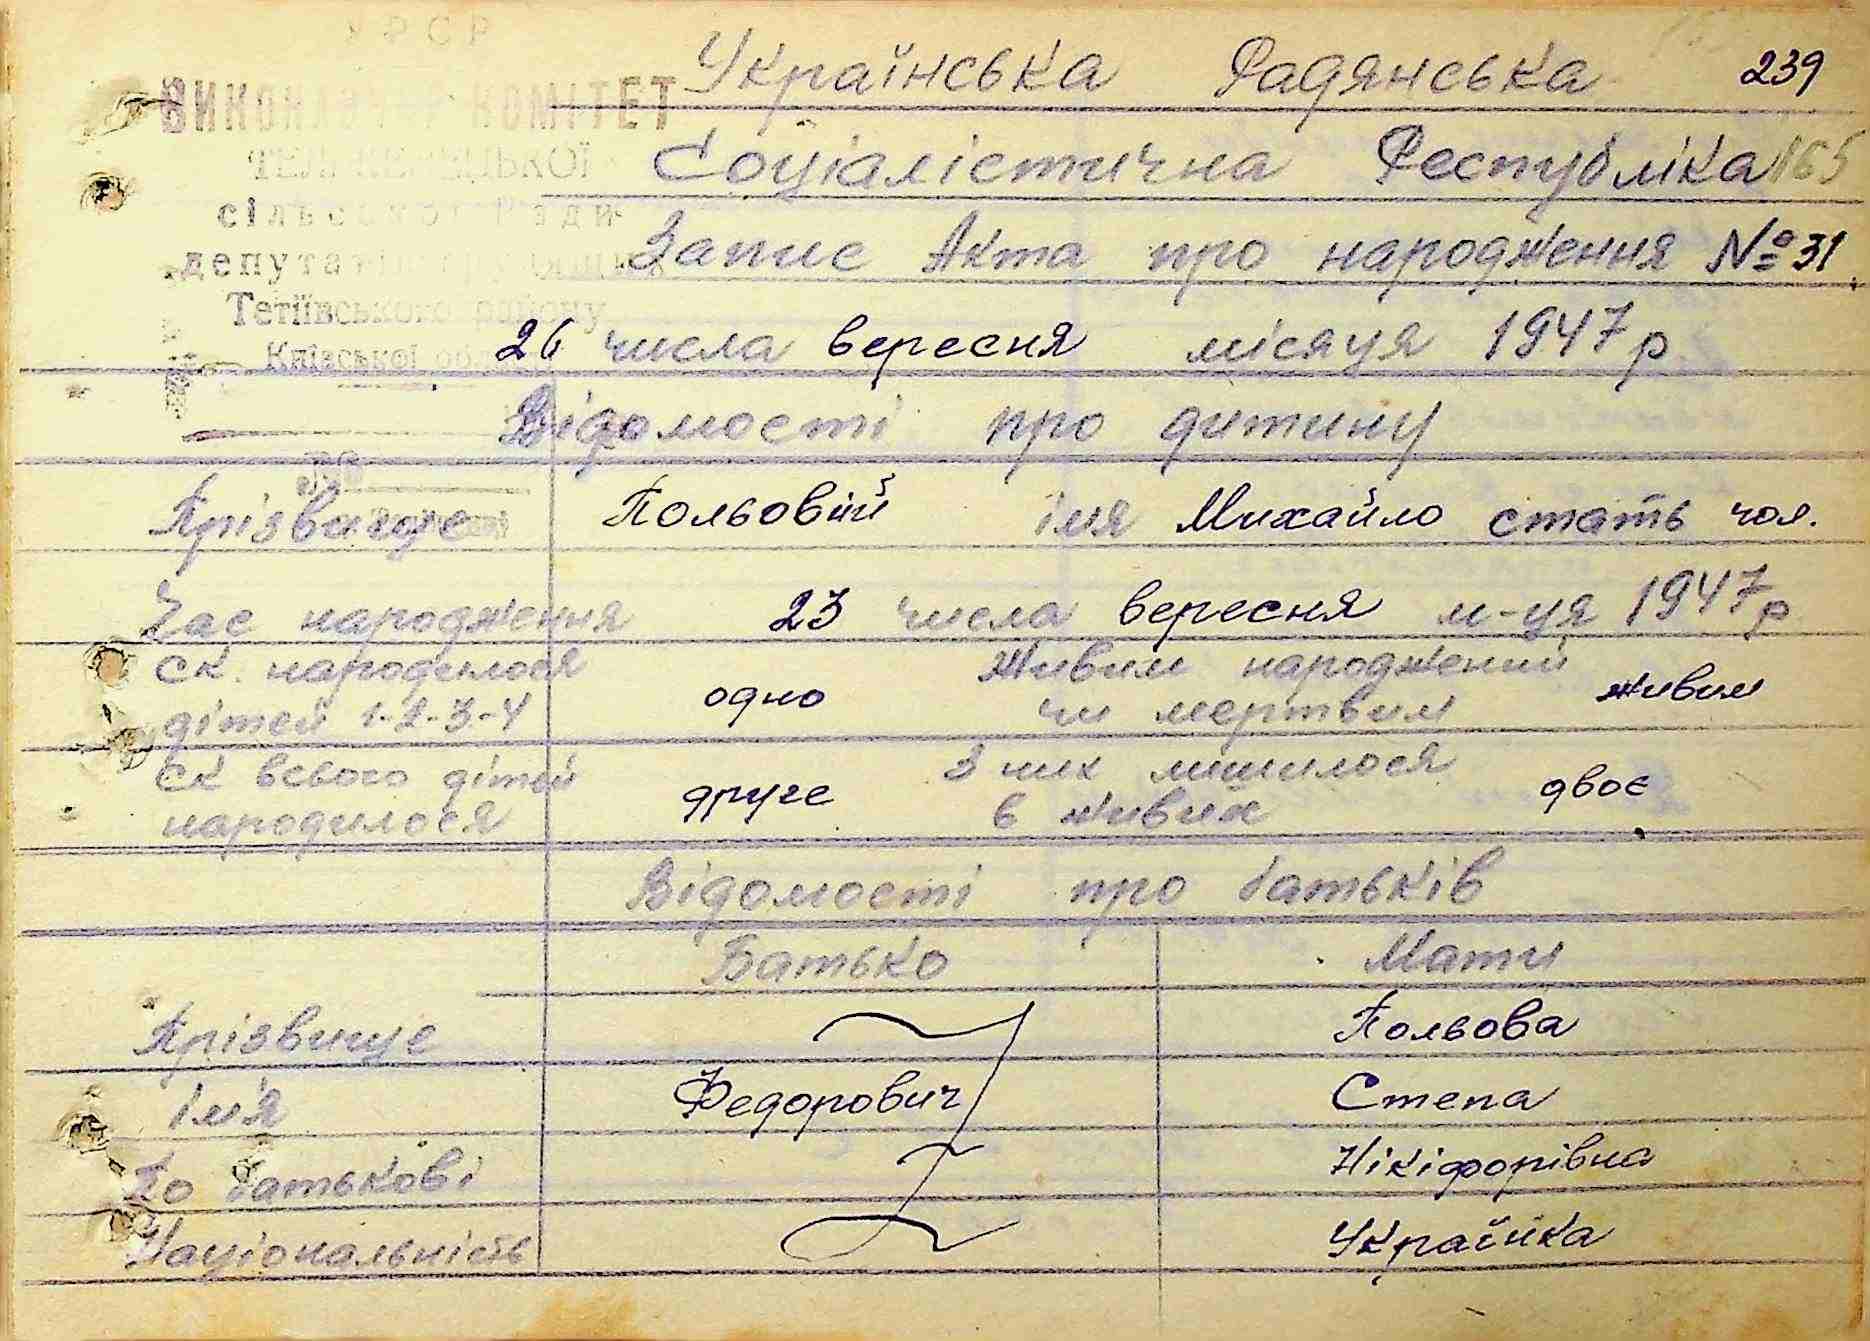 УРСР
Українська Радянська 239
ВИКОНАВЧИЙ КОМІТЕТ
Соціалістична Республіка 165
сільської Ради
Запис Акта про народження № 31
депутатів трудящих
Тетіївського району
26 числа вересня місяця 1947 р
Київської області
Відомості про дитину
Прізвище Польовий імя Михайло стать чол.
Час народження 23 числа вересня м-ця 1947 р
Ск. народилося Живим народжений
дітей 1-2-3-4 одно чи мертвим живим
Ск всього дітей З них лишилося
народилося друге в живих двоє
Відомості про батьків
Батько Мати
Прізвище Польова
Ім'я Федорович Степа
По батькові Нікіфорівна
Національність Українка